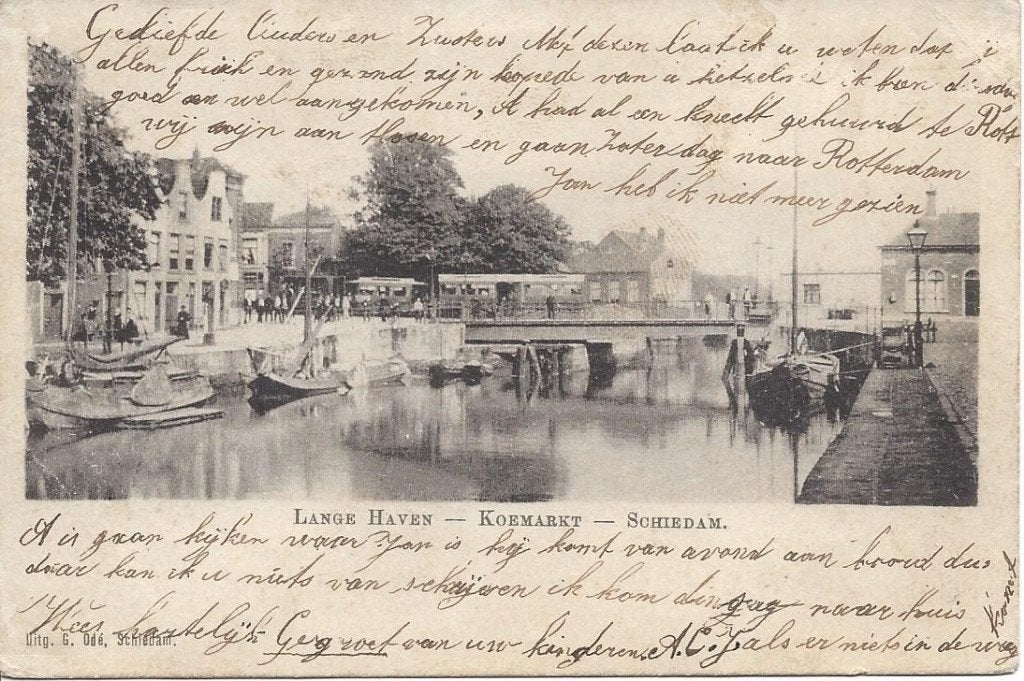 Geliefde Ouders en Zusters Met dezen laat ik u weten dat
allen frisch en gezond zijn hopede van u hetzelve ik ben
goed en wel aangekomen, A had al een knecht gehuurd te Rott
wij zijn aan Hosen en gaan Zaterdag naar Rotterdam
Jan heb ik niet meer gezien
LANGE HAVEN — KOEMARKT — SCHIEDAM.
A is gaan kijken waar Jan is hij komt van avond aan boord dus
daar kan ik u niets van schrijven ik kom dingsg naar Huis
Wees hartelijk Gegroet van uw kinderen A.C. als er niets in de weg
komt
Uitg. G. Odé, Schiedam.